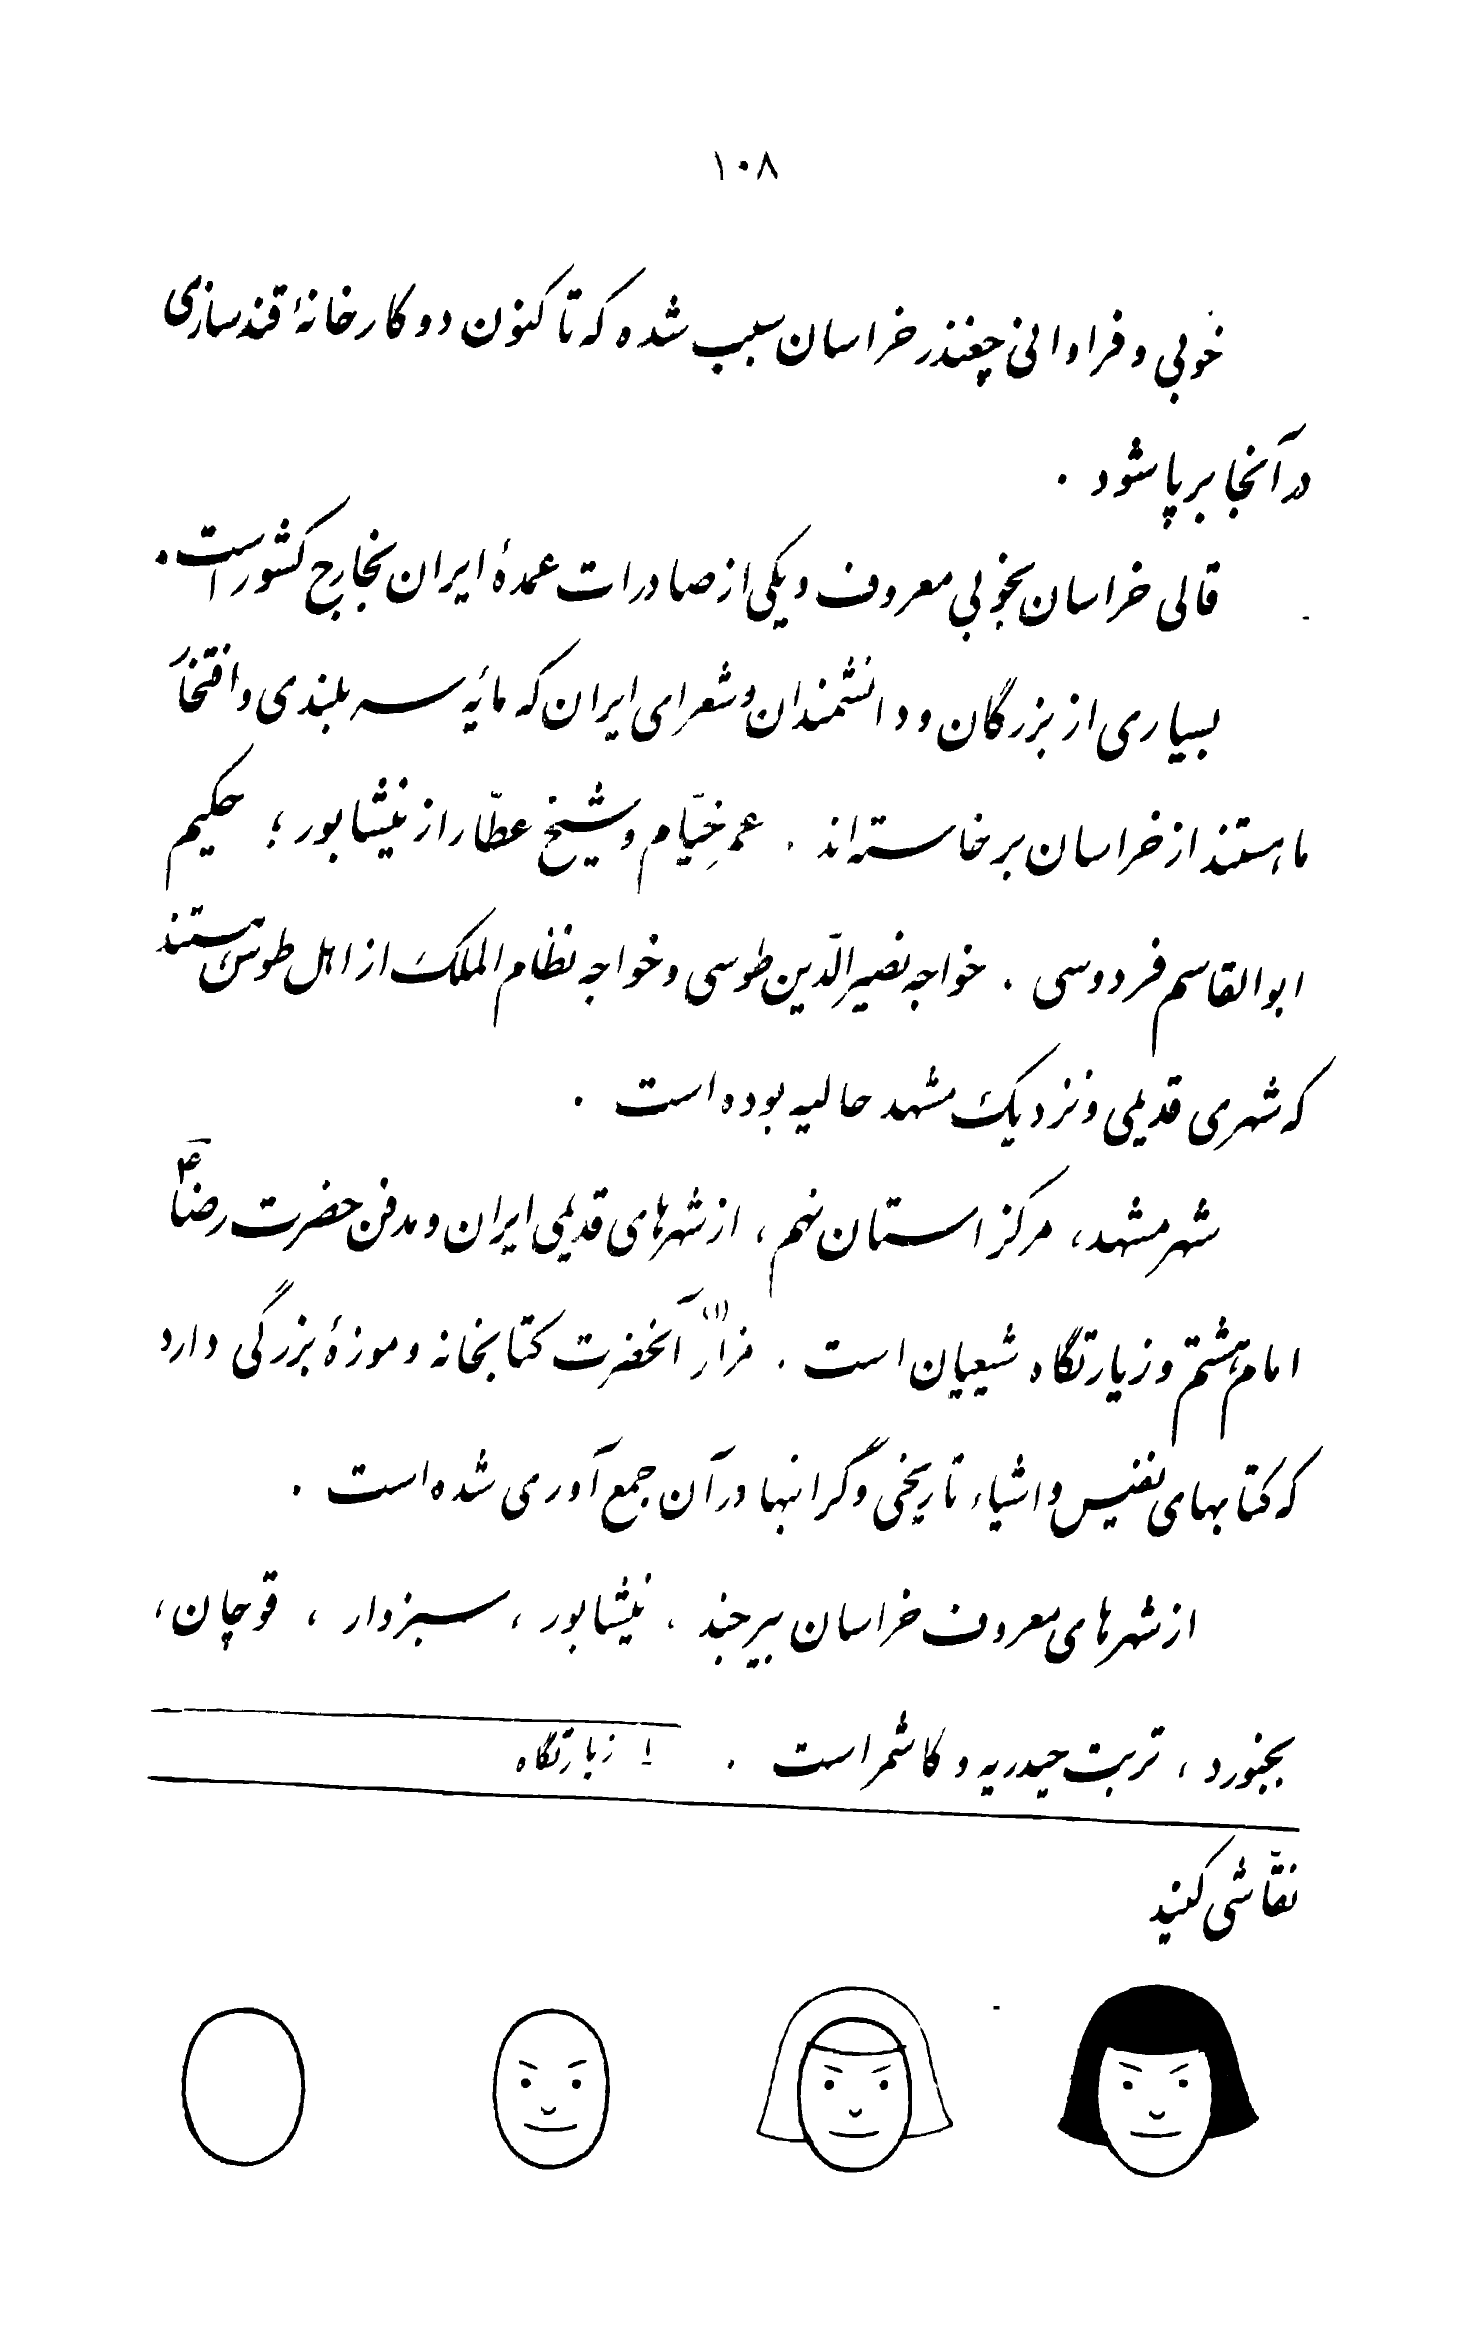 ۱۰۸
خوبی و فراوانی چغندر خراسان سبب شده که تا کنون دو کارخانهٔ قند سازی
در آنجا بر پا شود .
قالی خراسان بخوبی معروف و یکی از صادرات عمدهٔ ایران بخارج کشور است .
بسیاری از بزرگان و دانشمندان و شعرای ایران که مایهٔ سر بلندی و افتخار
ما هستند از خراسان برخاسته‌اند . عمر خیّام و شیخ عطّار از نیشابور ؛ حکیم
ابوالقاسم فردوسی . خواجه نصیرالدّین طوسی و خواجه نظام الملک از اهل طوس هستند
که شهری قدیمی و نزدیک مشهد حالیه بوده است .
شهر مشهد ، مرکز استان نهم ، از شهرهای قدیمی ایران و مدفن حضرت رضا ع
امام هشتم و زیارتگاه شیعیان است . مزار (۱) آنحضرت کتابخانه و موزهٔ بزرگی دارد
که کتابهای نفیس و اشیاء تاریخی و گرانبها در آن جمع آوری شده است .
از شهرهای معروف خراسان بیرجند ، نیشابور ، سبزوار ، قوچان ،
بجنورد ، تربت حیدریه و کاشمر است .
۱ زیارتگاه
نقّاشی کنید